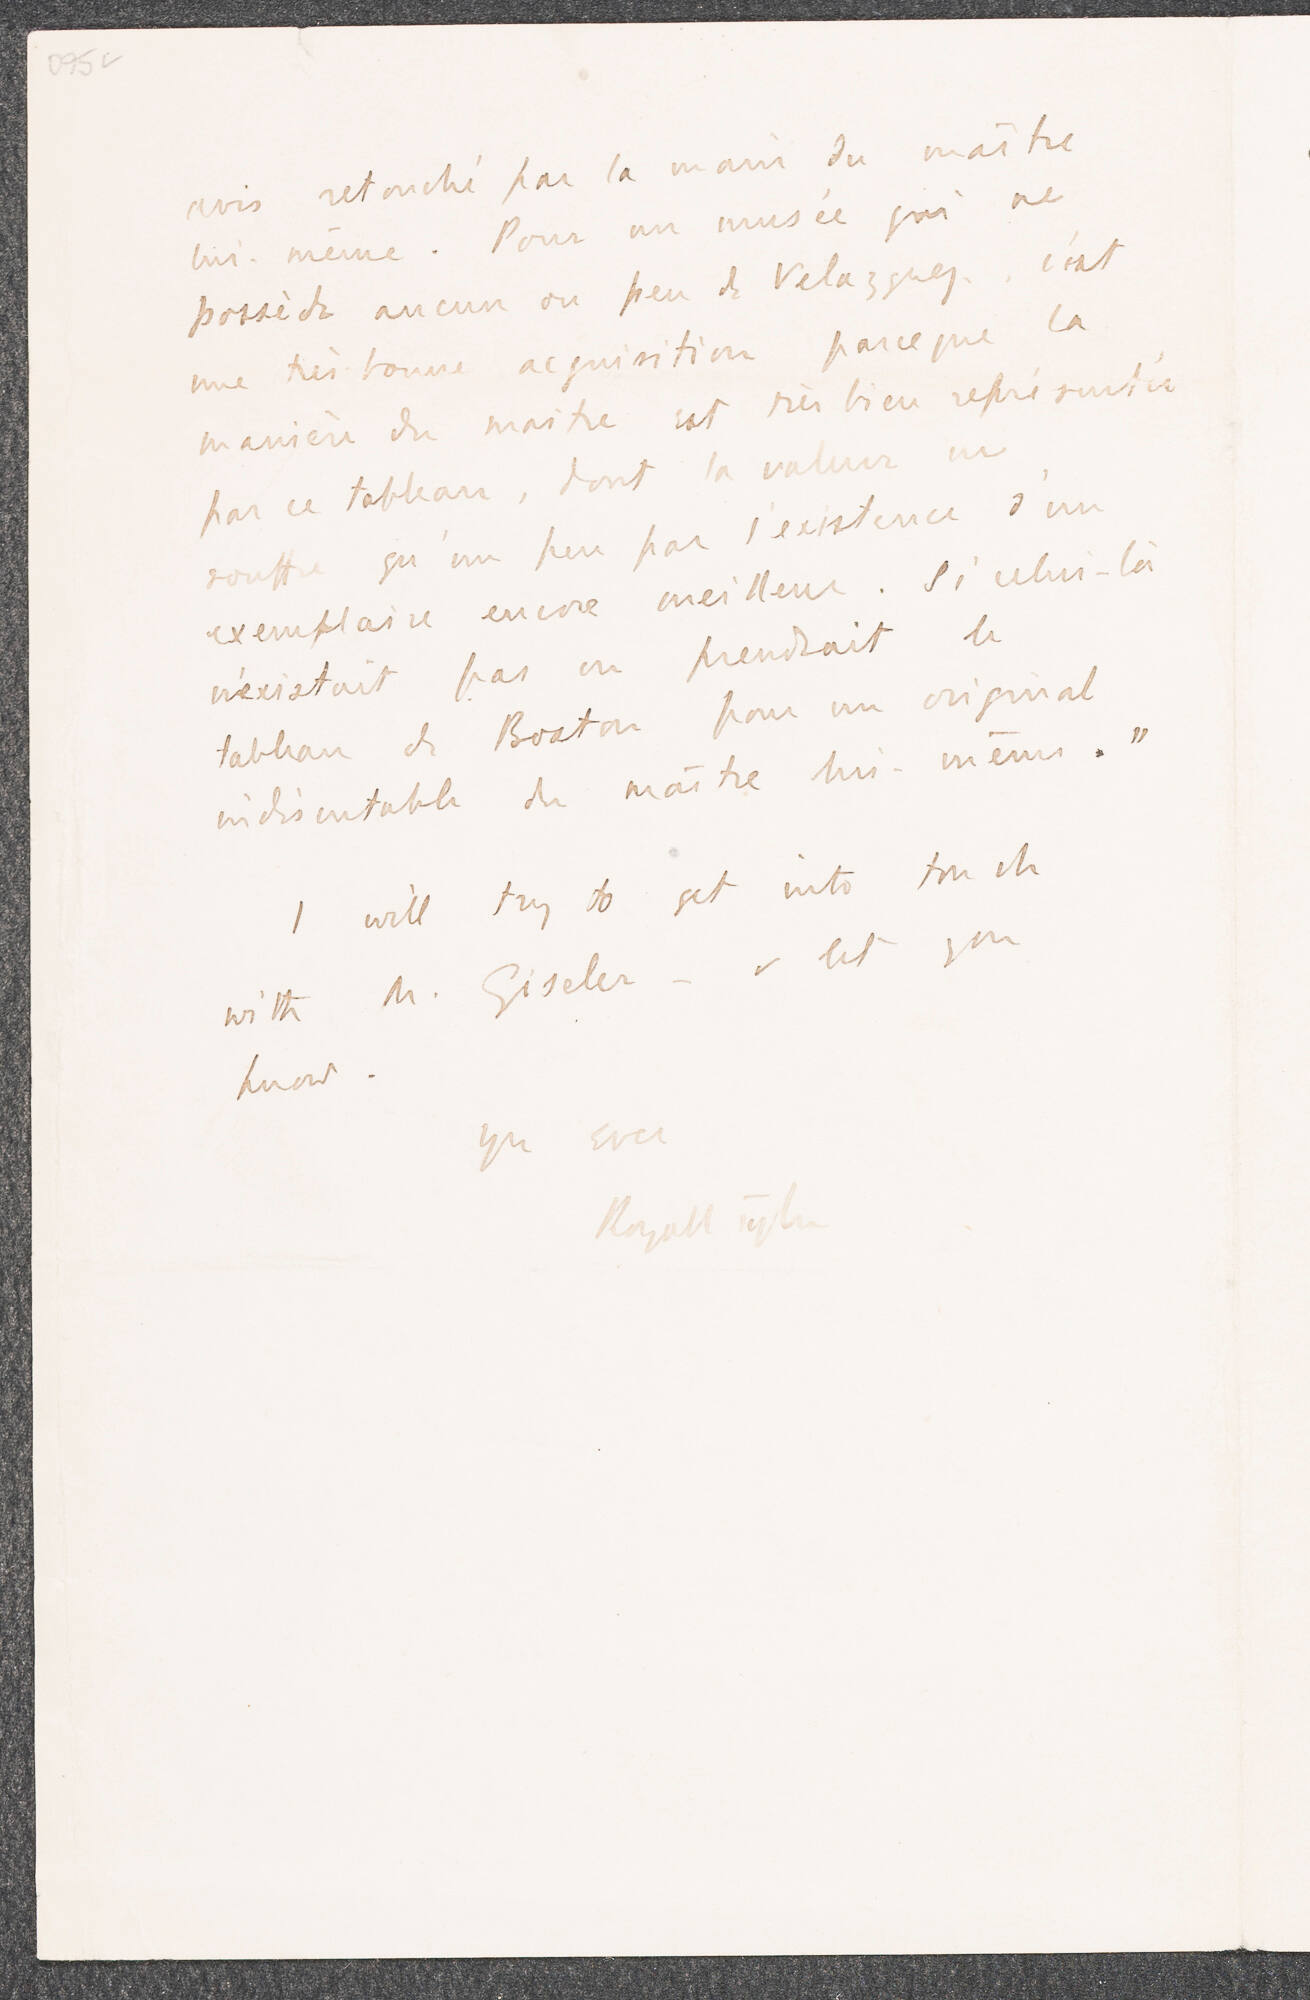 095v
avis retouché par la main du maître
lui-même. Pour un musée qui ne
possède aucun ou peu de Velazquez, c'est
une très bonne acquisition parceque la
manière du maitre est très bien représentée
par ce tableau, dont la valeur ne
souffre qu'un peu par l'existence d'un
exemplaire encore meilleur. Si celui-là
n'existait pas on prendrait le
tableau de Boston pour un original
indiscutable du maître lui-même."
I will try to get into touch
with Dr. Giseler – & let you
know.
Yrs ever
Royall Tyler